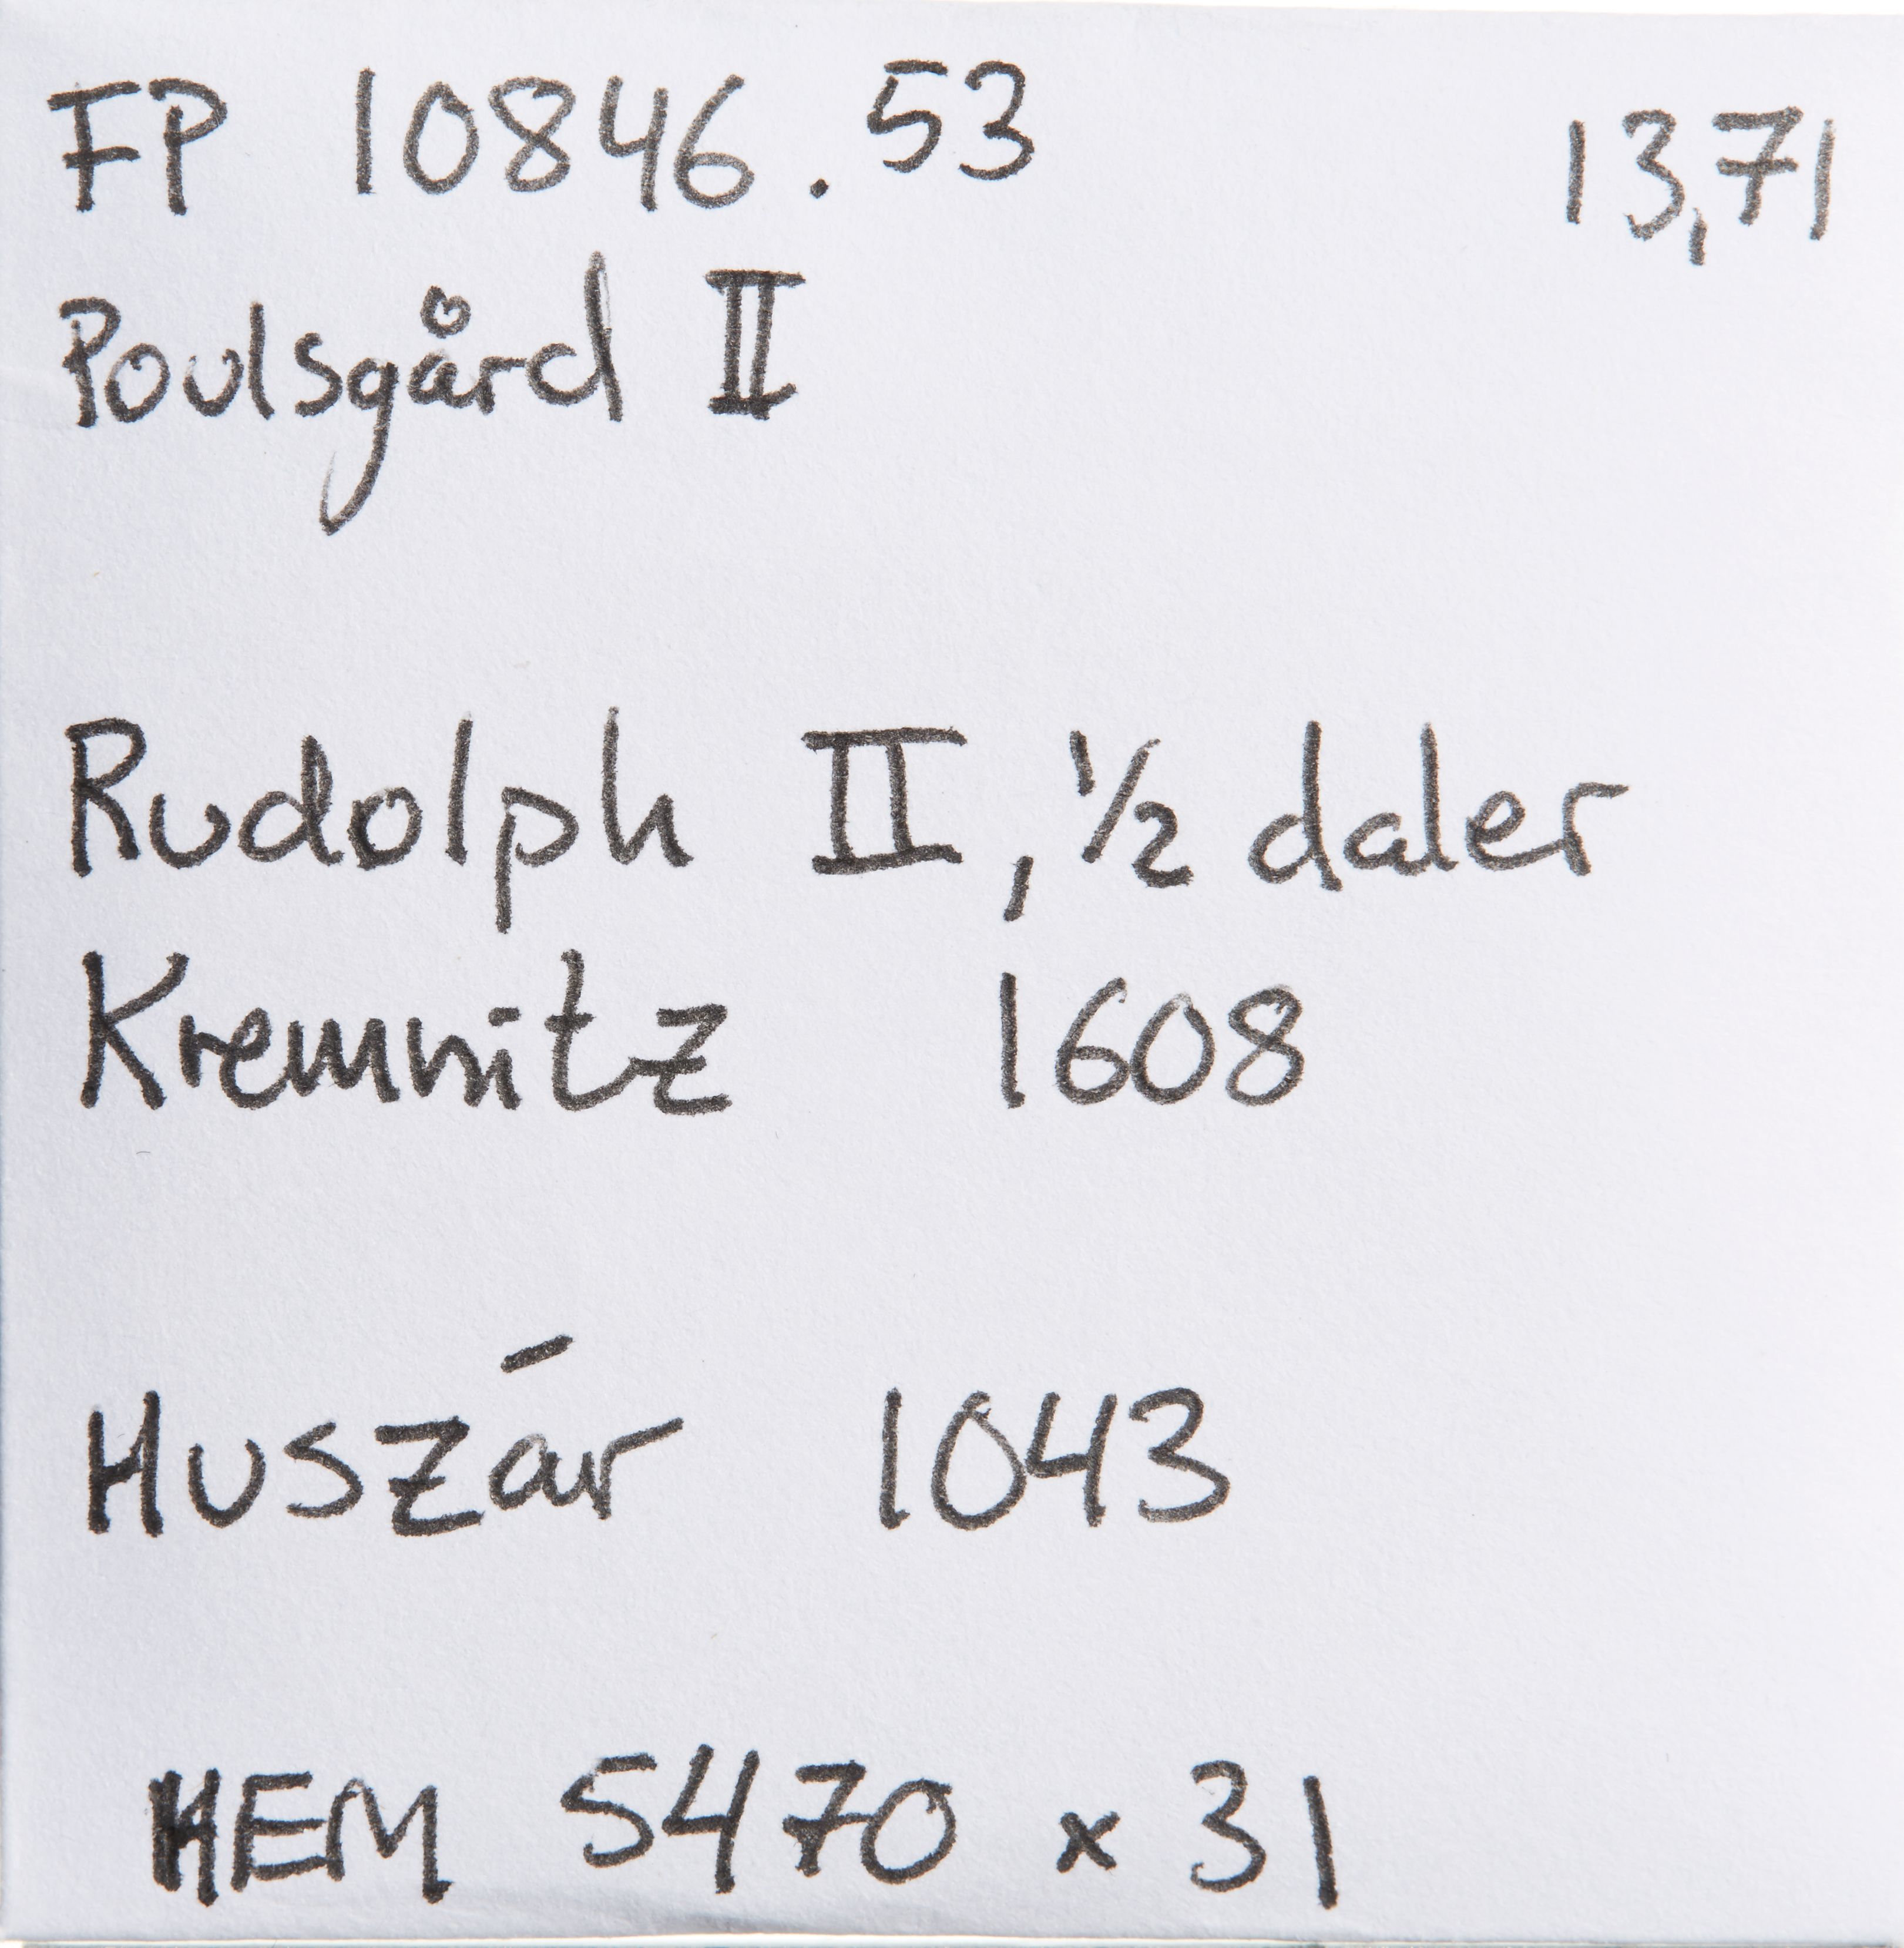 FP 10846.53 13,71
Poulsgård II
Rudolph II, 1/2 daler
Kremnitz 1608
Huszár 1043
HEM 5470 x 31